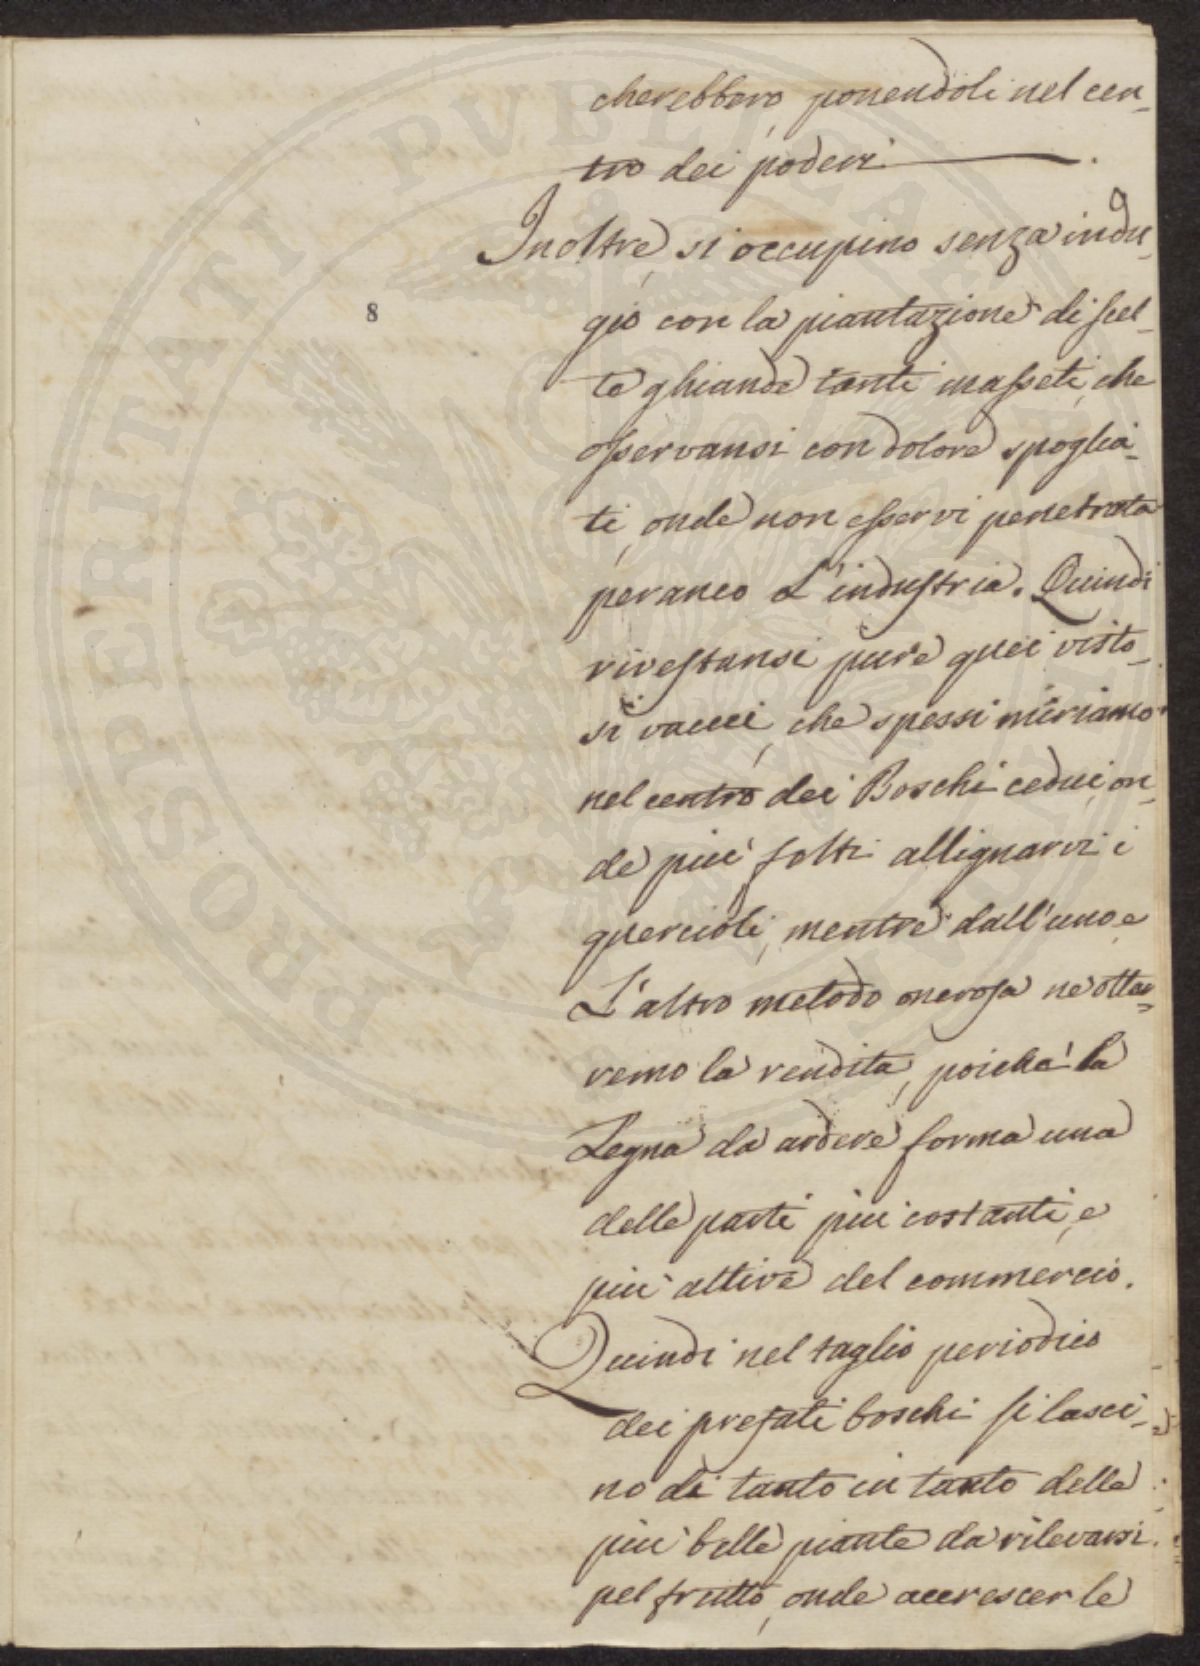 cherebbero, ponendoli nel cen-
tro dei poderi.
Inoltre, si occupino senza indu-
8
gio con la piantazione di scel-
te ghiande tanti masseti, che
osservansi con dolore spoglia-
ti, onde non esservi penetrata
peranco L'industria. Quindi
rivestansi pure quei visto-
si vacui, che spessi miriamo
nel centro dei Boschi cedui, on-
de più folti allignarvi i
quercioli, mentre dall'uno e
L'altro metodo onerosa ne ottar-
remo la rendita, poichè la
Legna da ardere forma una
delle parti più costanti, e
più attive del commercio.
Quindi nel taglio periodico
dei prefati boschi si lasci-
no di tanto in tanto delle
più belle piante da rilevarsi
pel frutto, onde accrescer le
PROSPERITATI PVBLICAE